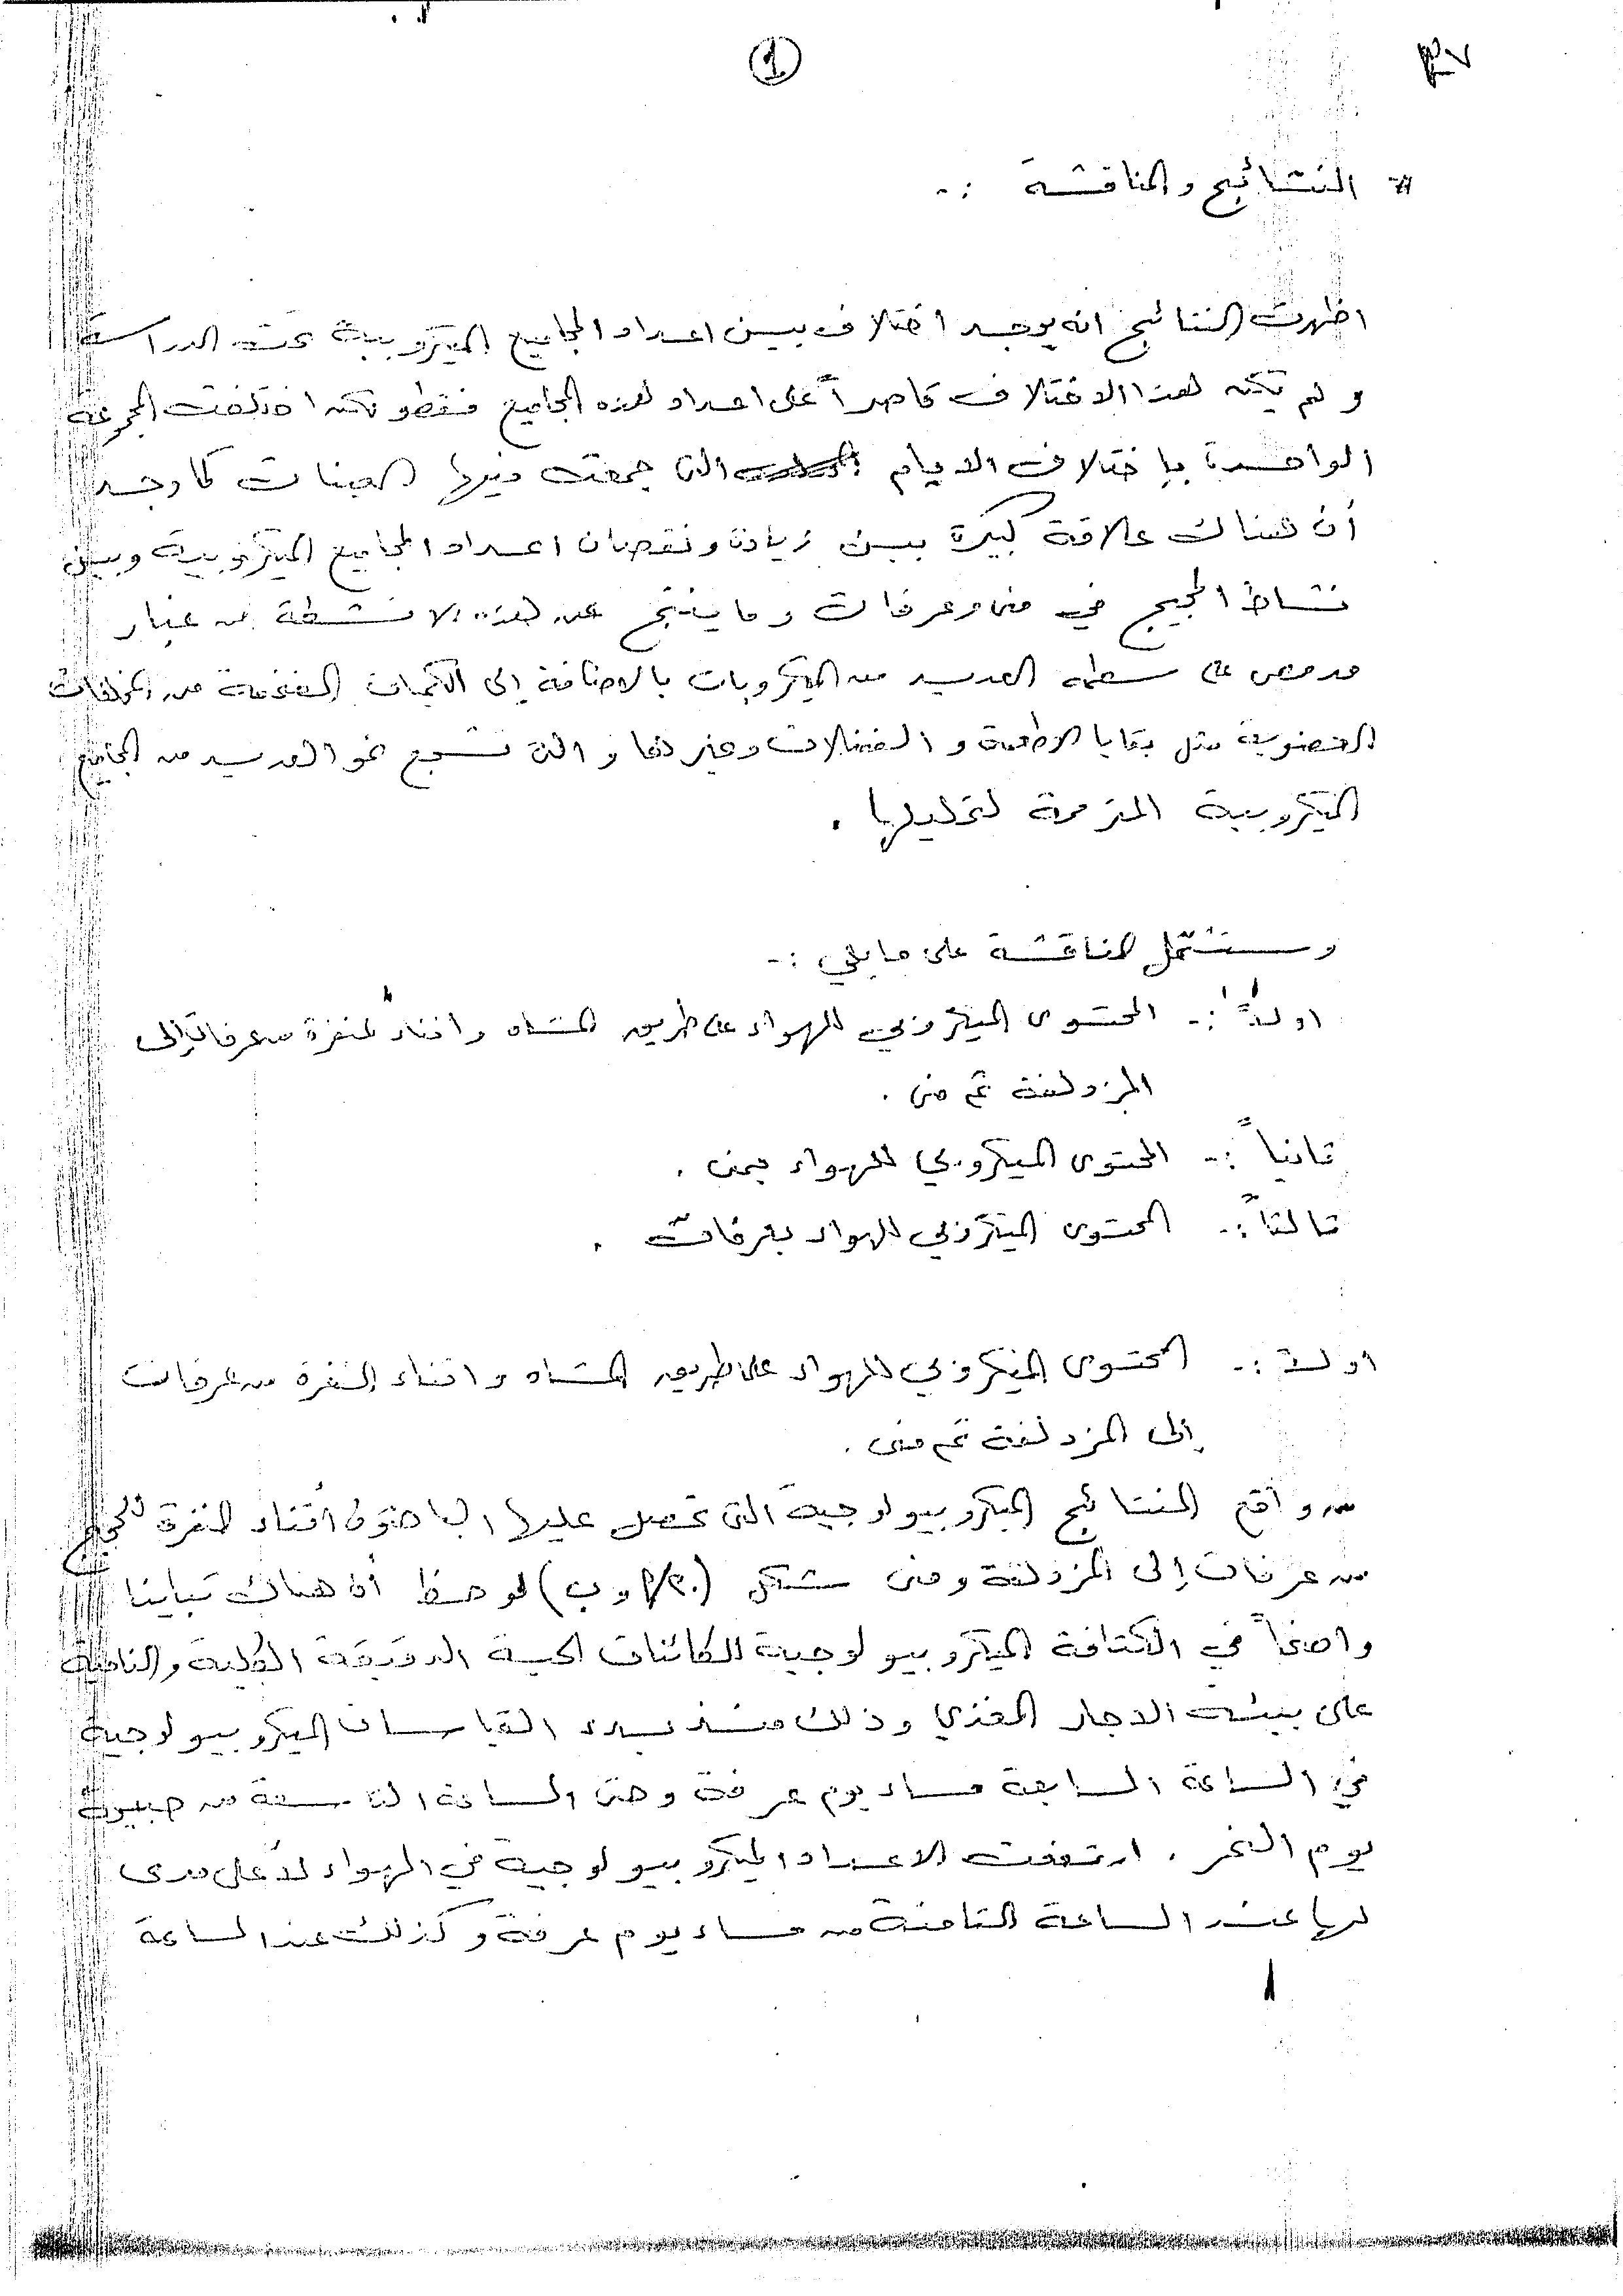 1
# النتائج والمناقشة :-
اظهرت النتائج انه يوجد اختلاف بين اعداد المجاميع الميكروبية تحت الدراسة
ولم يكن هذا الاختلاف قاصراً على اعداد هذه المجاميع فقط ولكن اختلفت المجموعة
الواحدة بإختلاف الايام التى جمعت فيها العينات كما وجد
أن هناك علاقة كبيرة بين زيادة ونقصان اعداد المجاميع الميكروبية وبين
نشاط الحجيج في منى وعرفات وما ينتج عن هذه الانشطة من غبار
مدمص على سطحه العديد من الميكروبات بالاضافة إلى الكميات الضخمة من المخلفات
العضوية مثل بقايا الاطعمة والفضلات وغيرها والتى تشجع نمو العديد من المجاميع
الميكروبية المترممة لتحليلها .
وستشتمل المناقشة على مايلي :-
اولاً :- المحتوى الميكروبي للهواء على طريق المشاه واثناء النفرة من عرفات إلى
المزدلفة ثم منى .
ثانياً :- المحتوى الميكروبي للهواء بمنى .
ثالثاً :- المحتوى الميكروبي للهواء بعرفات .
اولاً :- المحتوى الميكروبي للهواء على طريق المشاه واثناء النفرة من عرفات
إلى المزدلفة ثم منى .
من واقع النتائج الميكروبيولوجية التى تحصل عليها الباحثون أثناء نفرة الحجيج
من عرفات إلى المزدلفة ومنى شكل ( أ و ب ) لوحظ أن هناك تباينا
واضحاً في الكثافة الميكروبيولوجية للكائنات الحية الدقيقة الكلية والنامية
على بيئة الاجار المغذي وذلك منذ بدء القياسات الميكروبيولوجية
في الساعة السابعة مساء يوم عرفة وحتى الساعة التاسعة من صبيحة
يوم النحر . ارتفعت الاعداد الميكروبيولوجية في الهواء لأعلى مدى
لها عند الساعة الثامنة من مساء يوم عرفة وكذلك عند الساعة